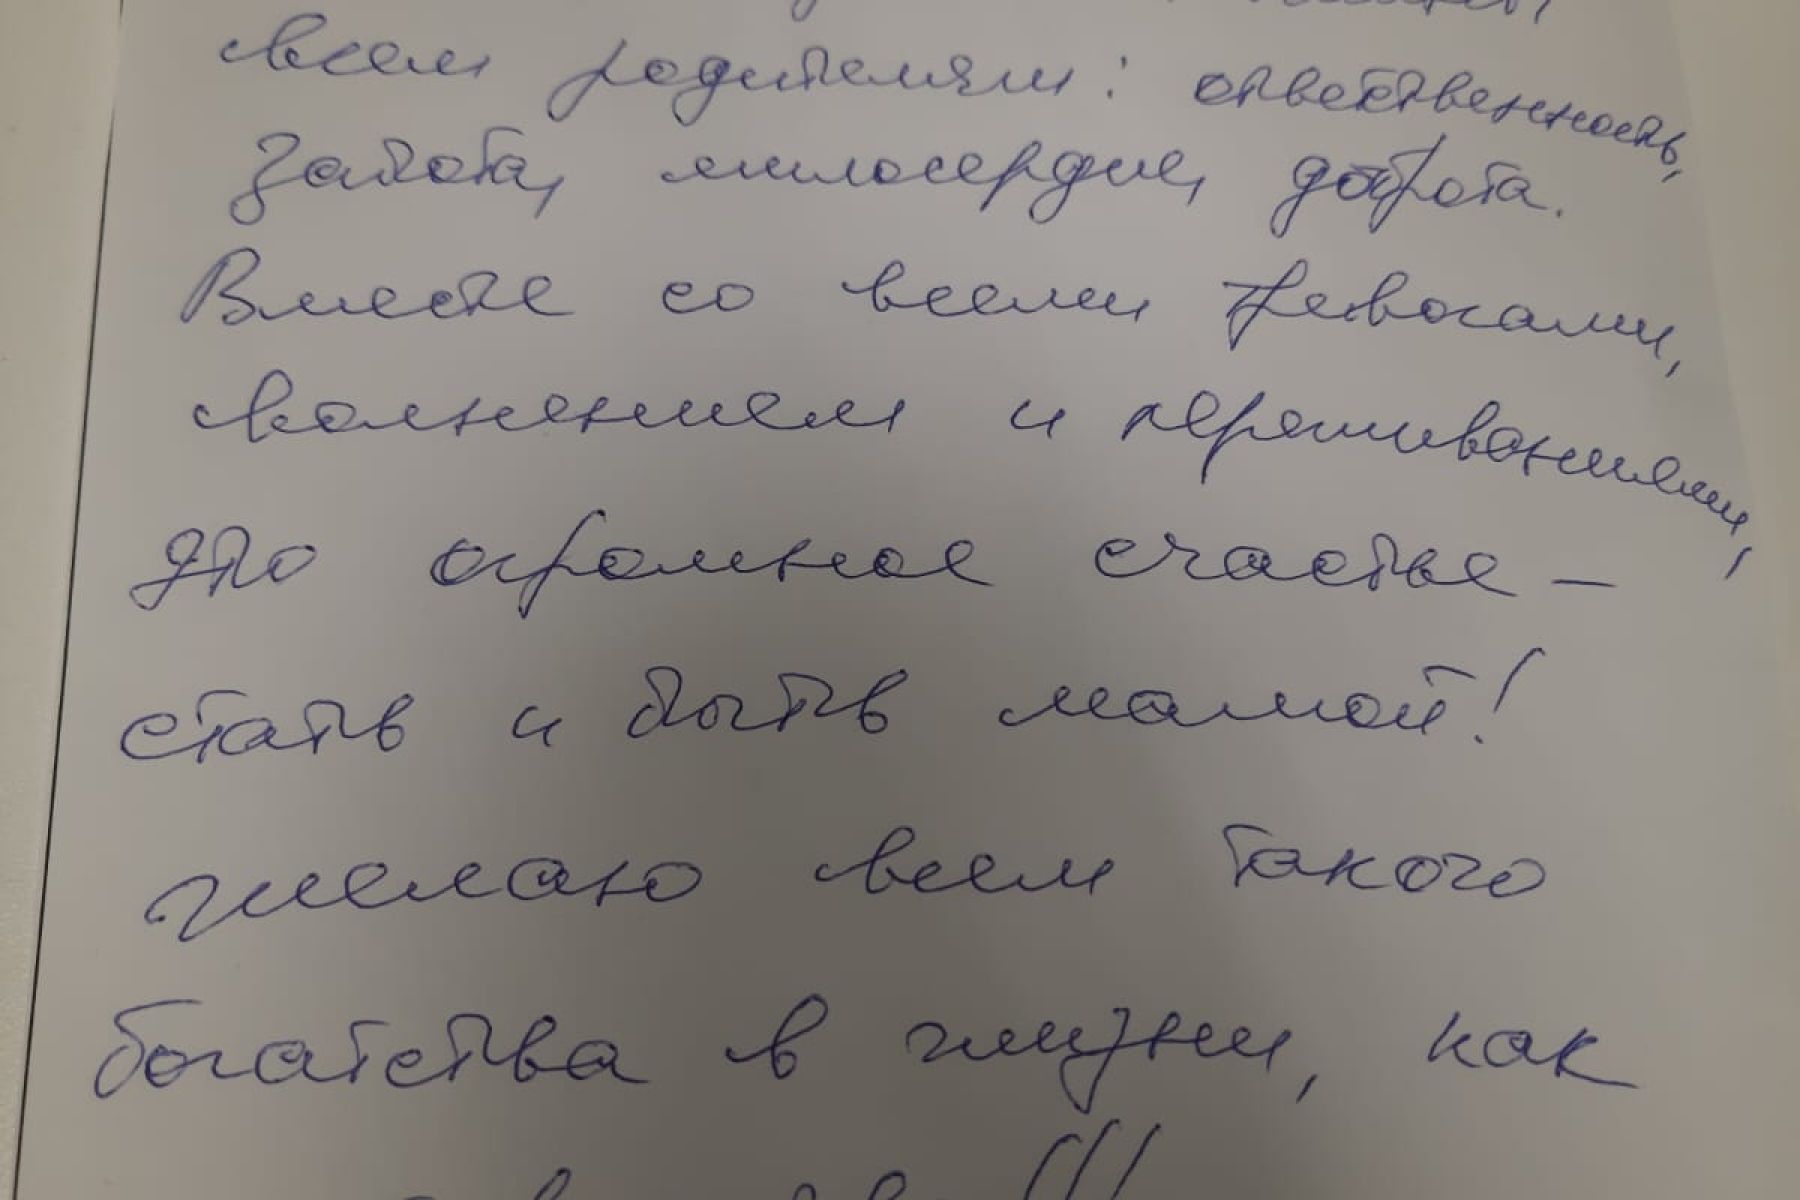 всем родителям: ответственность,
забота, милосердие, доброта.
Вместе со всеми тревогами,
волнением и переживаниями,
это огромное счастье –
стать и быть мамой!
Желаю всем такого
богатства в жизни, как
!!!